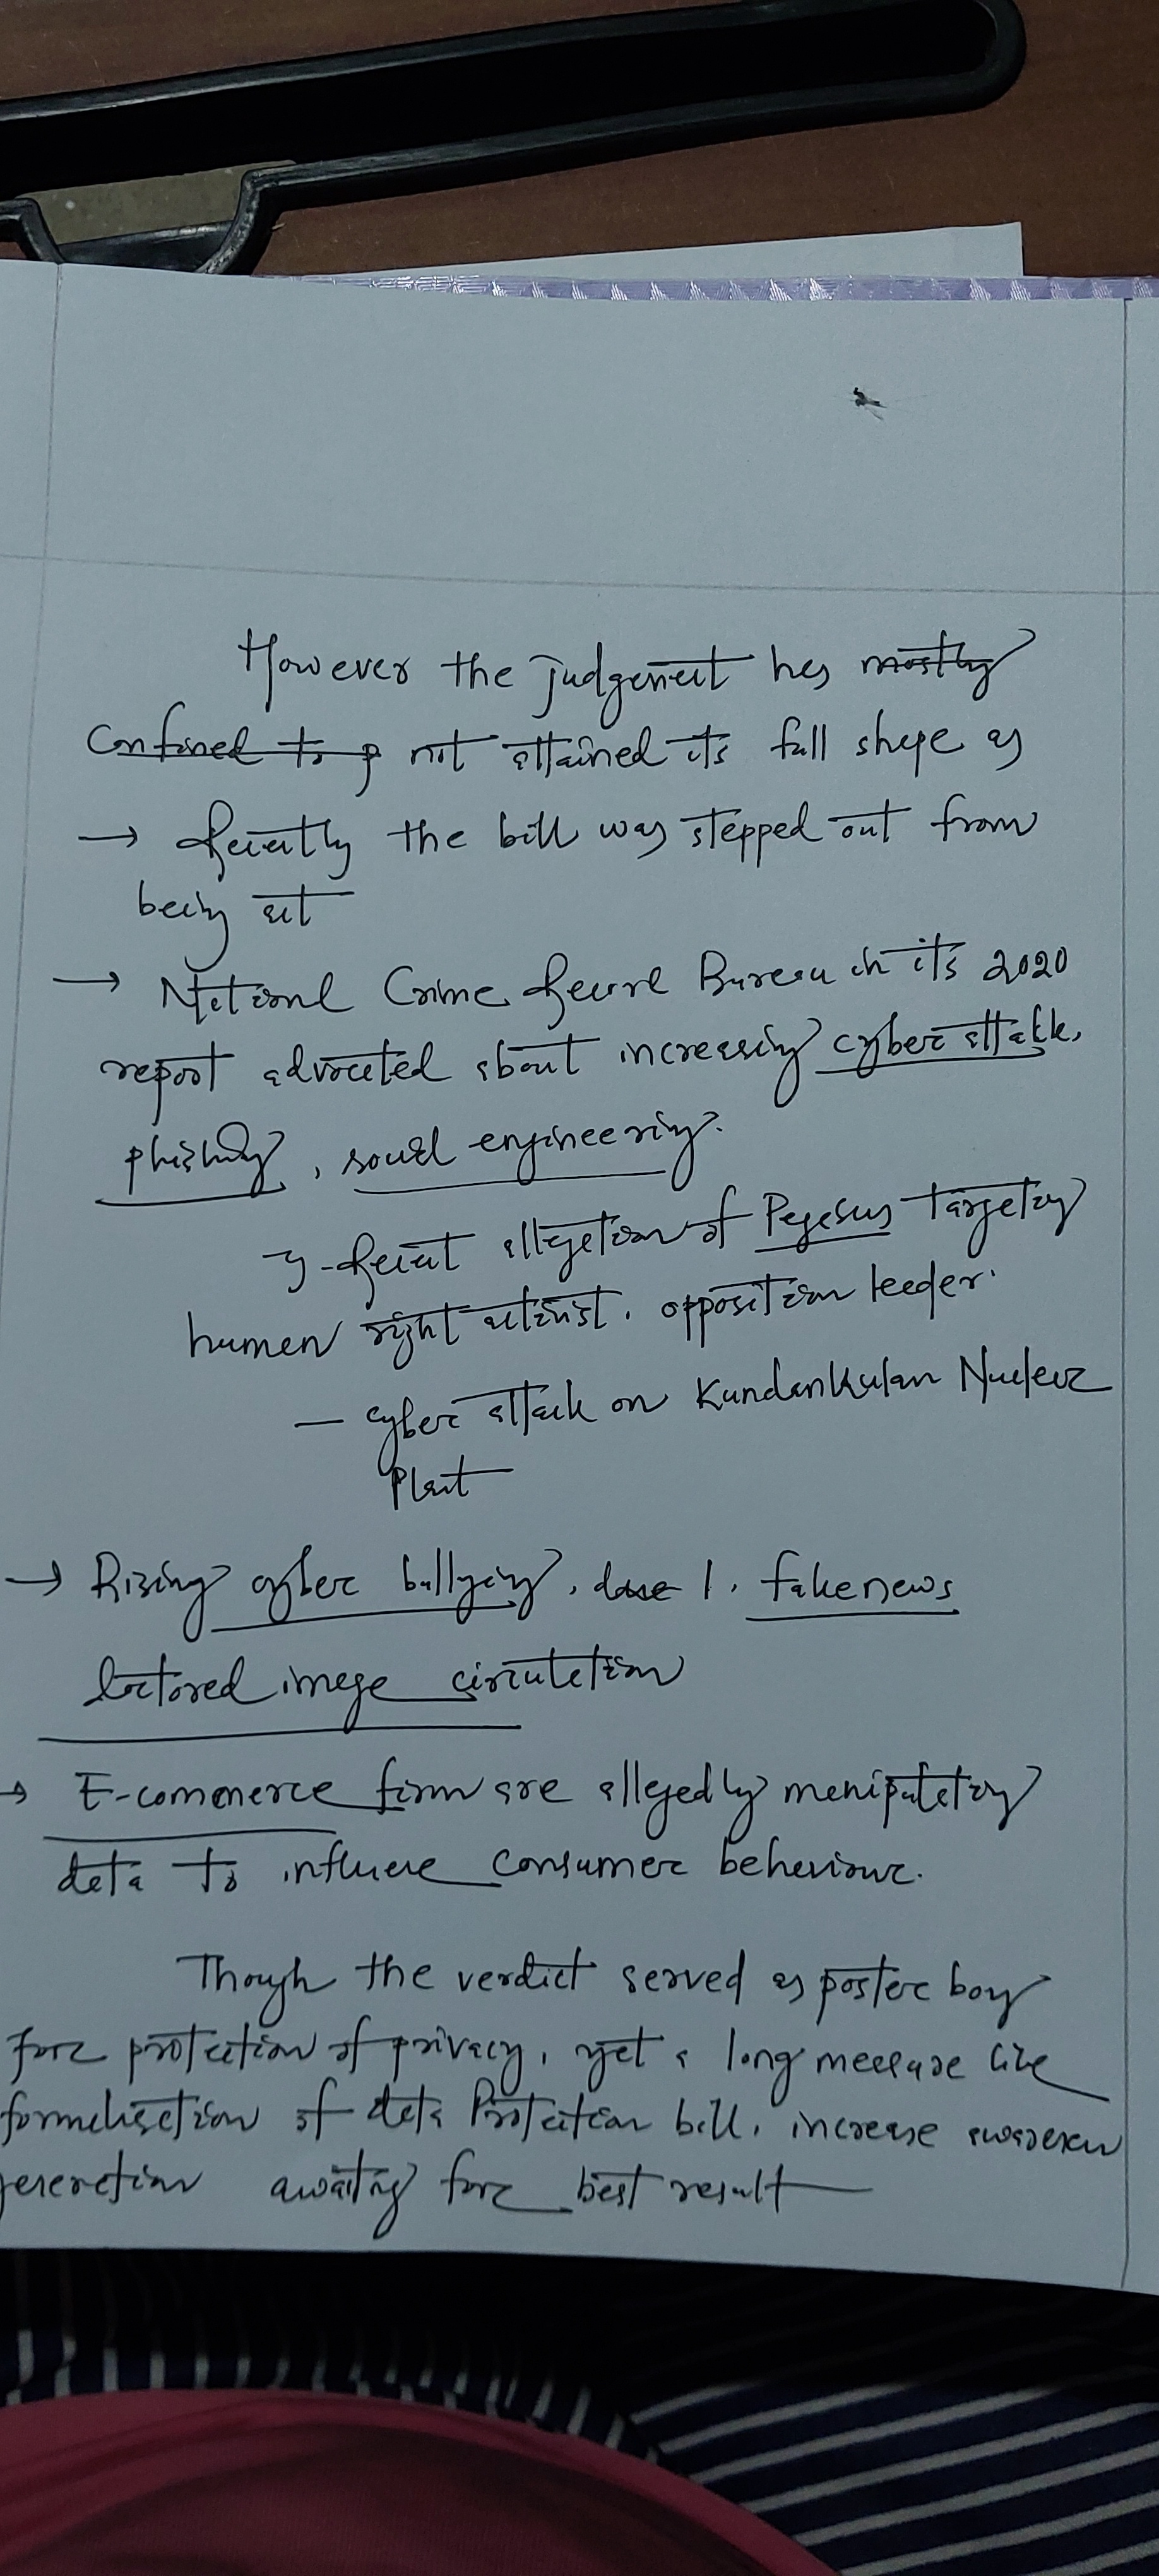 However the judgement has mostly
confined to p not attained its full shape as
→ Recently the bill was stepped out from
being act
→ National Crime Record Bureau in its 2020
report advocated about increasing cyber attack,
phishing, social engineering.
- Recent allegation of Pegasus targeting
human right activist, opposition leader.
— cyber attack on Kundankulan Nuclear
Plant
→ Rising cyber bullying, fake news
image circulation
→ E-commerce firm are allegedly manipulating
data to influence consumer behaviour.
Though the verdict served as poster boy
for protection of privacy, yet a long measure like
formalisation of data Protection bill, increase
generation awaiting for best result